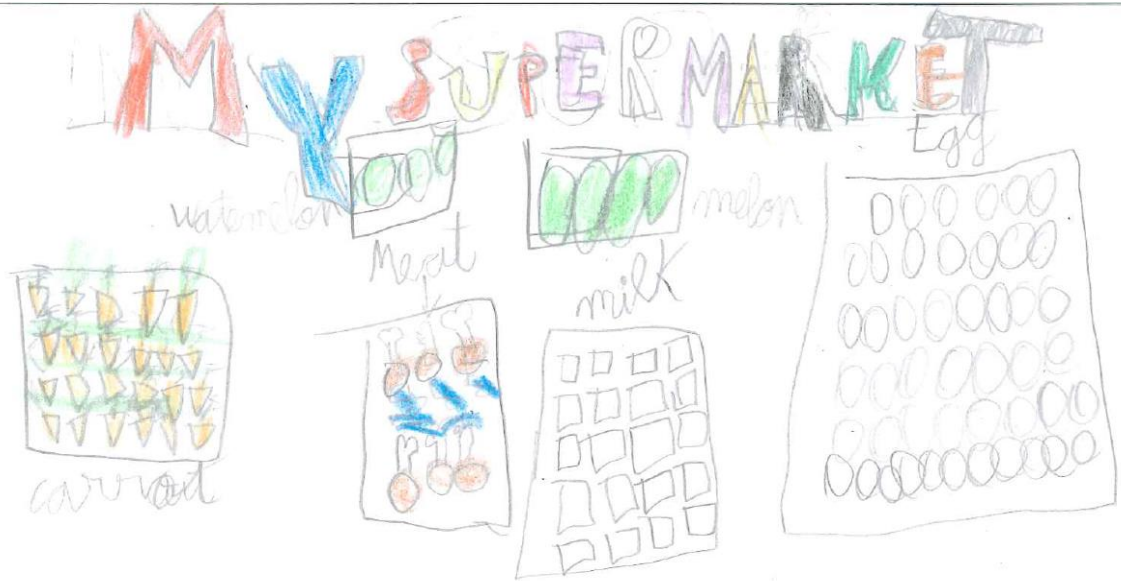 MY SUPERMARKET
Egg
watemelon
melon
Meat
milk
carroat